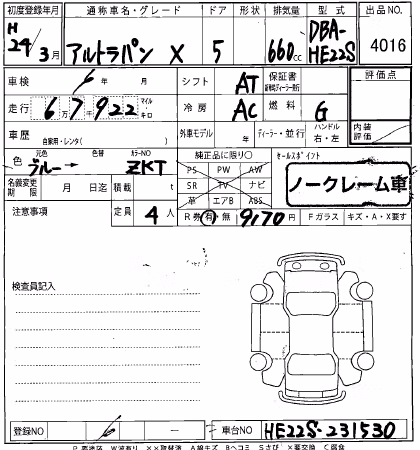 初度登録年月 通称車名・グレード ドア 形状 排気量 型式 出品NO.
H24/3月 アルトラパン X 5 660cc DBA-HE22S 4016
車検 6年 月 シフト AT 保証書 評価点
走行 6万7千922 マイル キロ 冷房 AC 燃料 G 内装評価
車歴 自家用・レンタ( ) 外車モデル 年 ディーラー・並行 ハンドル 右・左
色 元色 ブルー→ 色替 カラーNO ZKT 純正品に限り○ セールスポイント
PS PW AW
名義変更期限 月 日迄 積載 t SR TV ナビ ノークレーム車
革 エアB ABS
注意事項 定員 4人 R券 有・無 9170円 Fガラス キズ・A・X要す
検査員記入
登録NO 6 ー 車台NO HE22S-231530